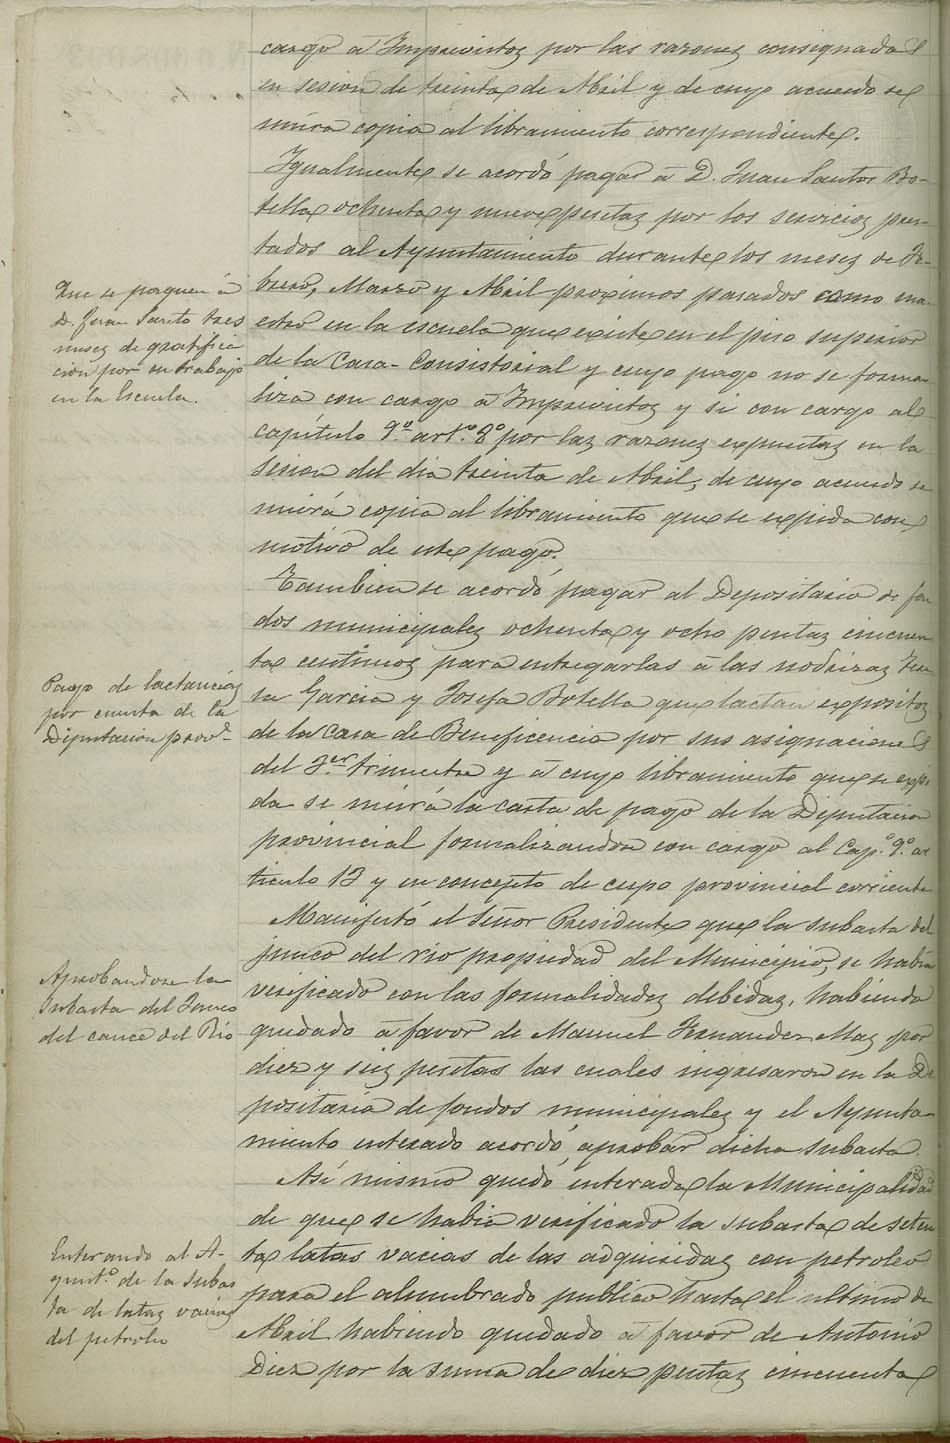 cargo á Imprevistos por las razones consignadas
en sesion de treinta de Abril y de cuyo acuerdo se
unira copia al libramiento correspondiente.
Igualmente se acordó pagar á D. Juan Santos Bo-
tella ochenta y nueve pesetas por los servicios pres-
tados al Ayuntamiento durante los meses de Fe-
brero, Marzo y Abril proximos pasados como ma-
estro en la escuela que existe en el piso superior
de la Casa-Consistorial y cuyo pago no se forma-
liza con cargo á Imprevistos y si con cargo al
capítulo 9.º art.º 8º por las razones expuestas en la
sesion del dia treinta de Abril, de cuyo acuerdo se
unirá copia al libramiento que se expida con
motivo de este pago.
Que se paguen á
D. Juan Santo tres
meses de gratifica
cion por su trabajo
en la Escuela.
Tambien se acordó, pagar al Depositario de fon
dos municipales ochenta y ocho pesetas cincuen
ta centimos para entregarlas á las nodrizas Tere
sa Garcia y Josefa Botella que lactan expositos
de la Casa de Beneficencia por sus asignaciones
del 3.er trimestre y á cuyo libramiento que se expi
da se unirá la carta de pago de la Diputacion
provincial formalizandose con cargo al Cap.º 9.º ar
ticulo 13 y en concepto de cupo provincial corriente
Pago de lactancias
por cuenta de la
Diputacion provl.
Manifestó el Señor Presidente que la subasta del
junco del rio propiedad del Municipio, se habia
verificado con las formalidades debidas, habiendo
quedado á favor de Manuel Fernandez Mas por
diez y seis pesetas las cuales ingresaron en la De
positaria de fondos municipales y el Ayunta-
miento enterado acordó, aprobar dicha subasta.
Aprobandose la
subasta del Junco
del cauce del Rio
Asi mismo quedó enterada la Municipalidad
de que se habia verificado la subasta de seten
ta latas vacias de las adquiridas con petroleo
para el alumbrado publico hasta el ultimo de
Abril habiendo quedado á favor de Antonio
Diez por la suma de diez pesetas cincuenta
Enterando al A-
yunt.º de la subas
ta de latas vacias
del petroleo